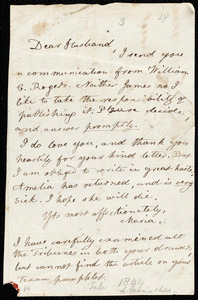 3 29
Dear Husband
I send you
a communication from William
C. Rogers. Neither James nor I
like to take the responsibility of
publishing it. Please decide,
and answer promptly.
I do love you, and thank you
heartily for your kind letter. But
I am obliged to write in great haste,
Amelia has returned, and is very
sick. I hope she will die.
Yrs most affectionately,
Maria.
I have carefully examined all
the Tribunes in both your drawers,
but cannot find the article on your
Texan pamphlet.
Feb 1844